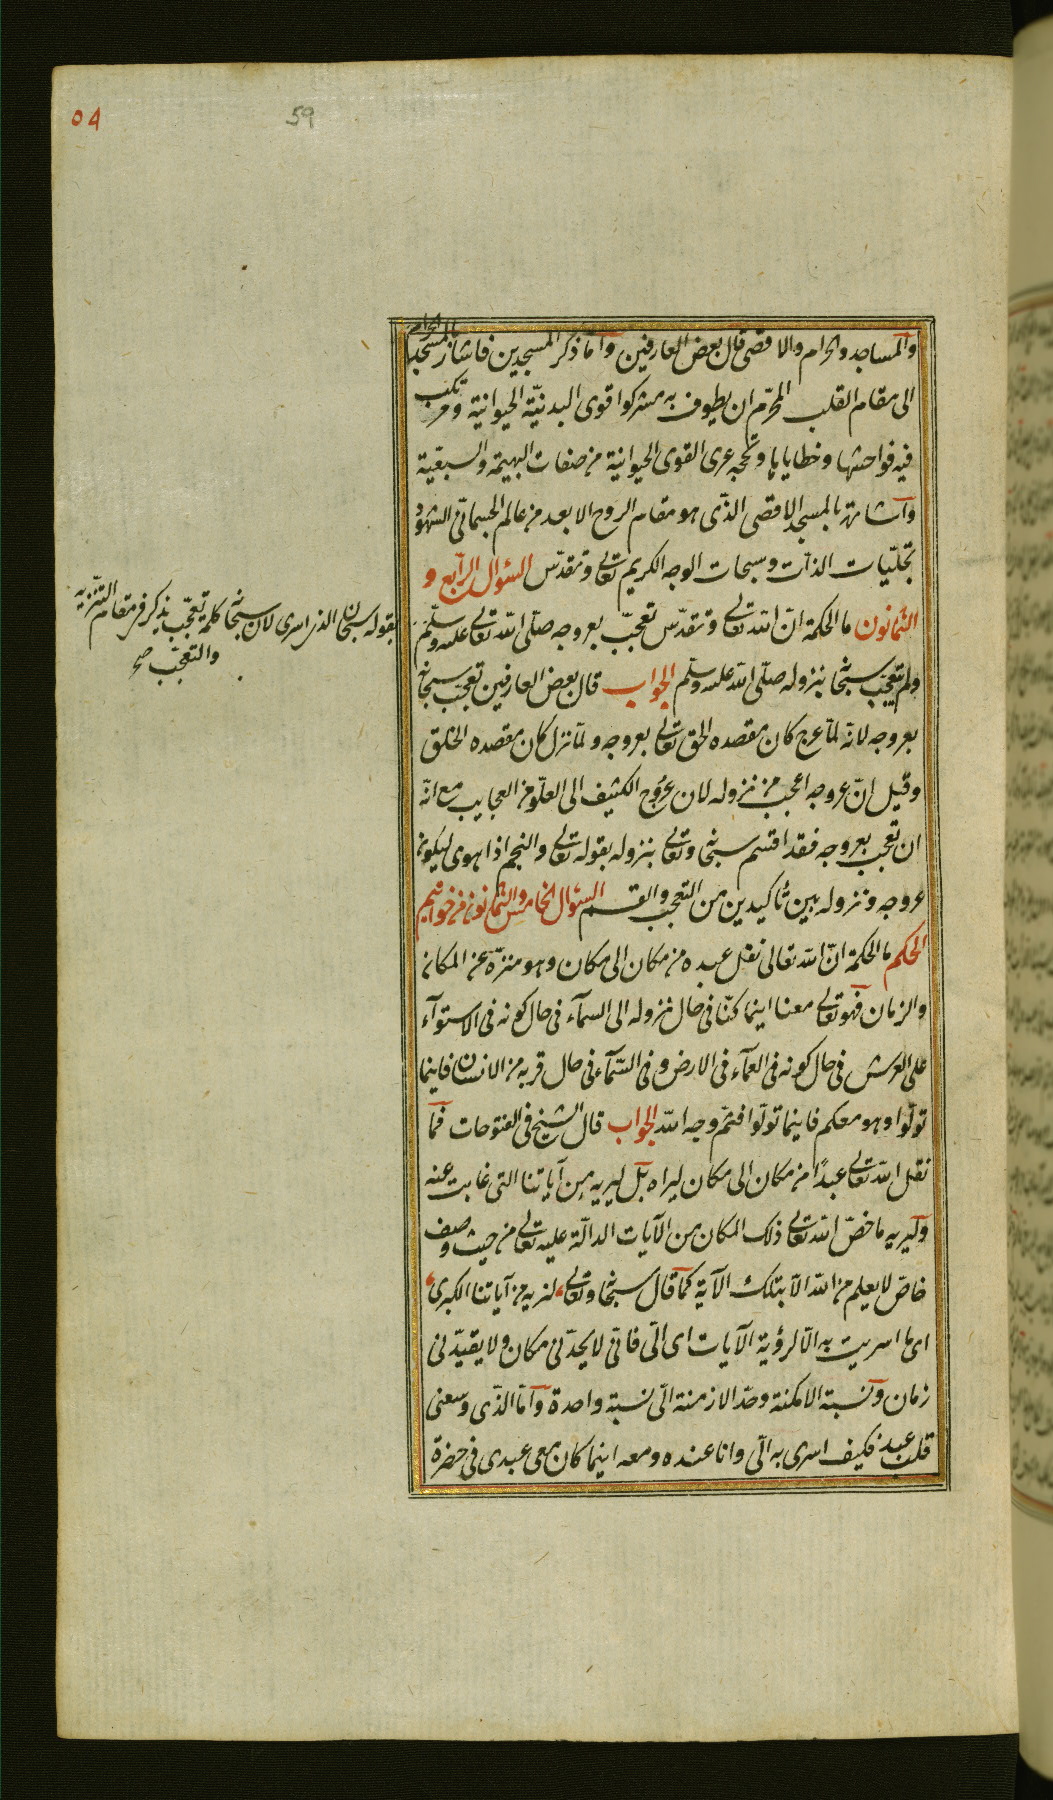 ٥٩
59
والمساجد والحرام والاقصى قال بعض العارفين وأما ذكر المسجدين فاشار بالمسجد الحرام
الى مقام القلب المحرّم ان يطوف به مشركوا قوى البدنيّة الحيوانية وترتكب
فيه فواحشها وخطاياها وتحجه عرى القوى الحيوانية من صفات البهيمة والسبعيّة
واشارته بالمسجد الاقصى الذّى هو مقام الروح الابعد من عالم الجسمانّى الشهود
تجلّيات الذات وسبحات الوجه الكريم تعالى وتقدّس السؤال الرّابع و
الثمانون ما الحكمة انّ الله تعالى وتقدّس تعجّب بعروجه صلّى الله تعالى عليه وسلّم
بقوله سبحان الذى اسرى لان سبحانه كلمة تعجّب يذكر فى مقام التنزيه
والتعجّب صح
ولم يتعجّب سبحانه بنزوله صلّى الله عليه وسلّم الجواب قال بعض العارفين تعجّب سبحانه
بعروجه لانّه لمّا عرج كان مقصده الحق تعالى بعروجه ولمّا نزل كان مقصده الخلق
وقيل انّ عروجه اعجب من نزوله لان عروج الكثيف الى العلّو من العجايب مع انّه
ان تعجّب بعروجه فقد اقتسم سبحانه وتعالى بنزوله بقوله تعالى والنجم اذا هوى ليكون
عروجه ونزوله بين تأكيدين من التعجّب والقسم السؤال الخامس والثمانون من خواتيم
الحكم ما الحكمة انّ الله تعالى نقل عبده من مكان الى مكان وهو منزّه عن المكان
والزمان فهو تعالى معنا اينما كنّا فى حال نزوله الى السمآء فى حال كونه فى الاستوآء
على العرش فى حال كونه فى العمآء فى الارض وفى السّمآء فى حال قربه من الانسان فاينما
تولّوا وهو معكم فاينما تولّوا فثمّ وجه الله الجواب قال الشيخ فى الفتوحات فما
نقل الله تعالى عبدًا من مكان الى مكان ليراه بل ليريه من آياتنا التى غابت عنه
وليريه ما خصّ الله تعالى ذلك المكان من الآيات الدالّة عليه تعالى من حيث وصف
خاصّ لا يعلم من الله الاّ بتلك الآية كما قال سبحانه وتعالى لنريه من آياتنا الكبرى
اى ما اسريت به الاّ لرؤية الآيات اى الىّ فانّى لا يحدّنى مكان ولا يقيّدنى
زمان ونسبة الامكنة وحدّ الازمنة الىّ نسبة واحدة واما الذّى وسعنى
قلب عبدى فكيف اسرى به الىّ وانا عنده ومعه اينما كان معى عبدى فى حضرة